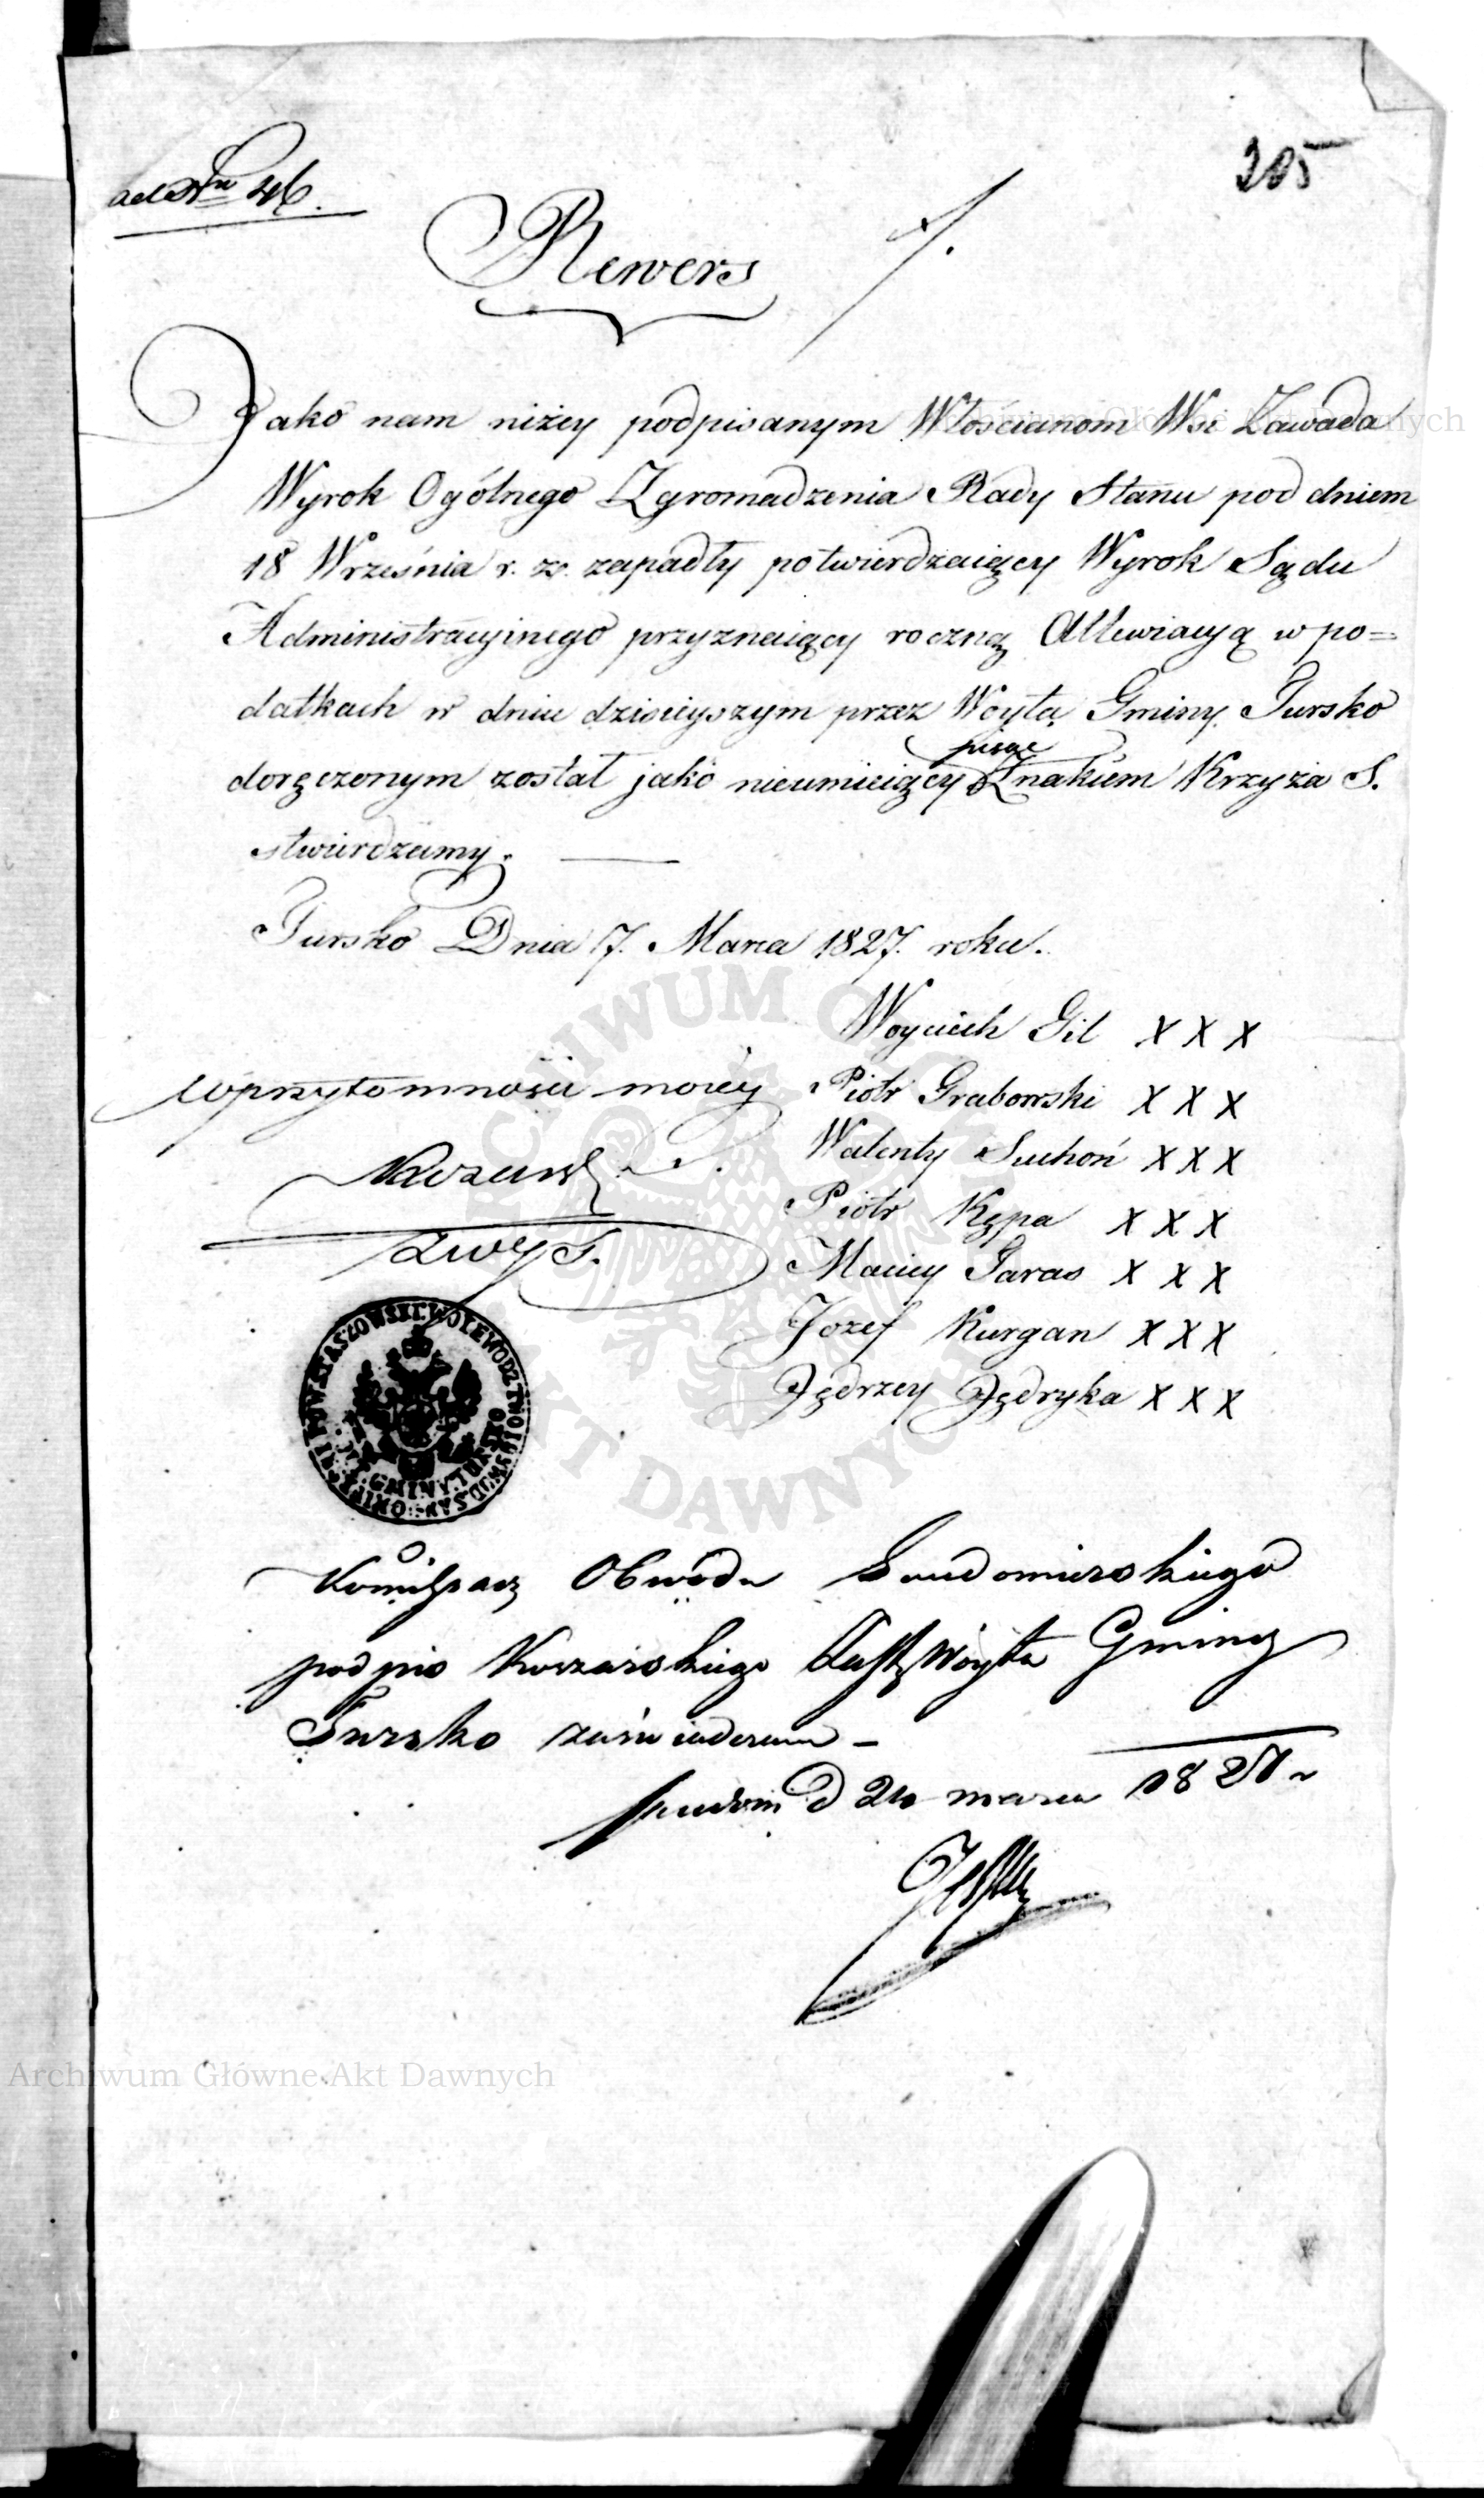 ad Nrū 46.
205
Rewers
Jako nam niżey podpisanym Włościanom Wsi Zawada
Wyrok Ogólnego Zgromadzenia Rady Stanu pod dniem
18 Września r. z. zapadły potwierdzaiący Wyrok Sądu
Administracyinego przyznaiący roczną Allewiacyą w po=
datkach w dniu dzisieyszym przez Woyta Gminy Tursko
pisać
doręczonym został jako nieumieiący Znakiem Krzyża S.
stwierdzamy.
Tursko Dnia 17. Marca 1827. roku.
Woyciech Gil X X X
w przytomności moiey
Piotr Grabowski X X X
Walenty Suchoń X X X
Piotr Kępa X X X
Maciey Garas X X X
Jozef Kurgan X X X
Jędrzey Jędryka X X X
Zwyt.
GMINY TURSKO
Kommissarz Obwodu Sandomirskiego
podpis Koszarskiego Zast. Woyta Gminy
Tursko zaświadcza
Sandom d 24 marca 1827 r
Archiwum Główne Akt Dawnych
ARCHIWUM GŁÓWNE AKT DAWNYCH
Archiwum Główne Akt Dawnych